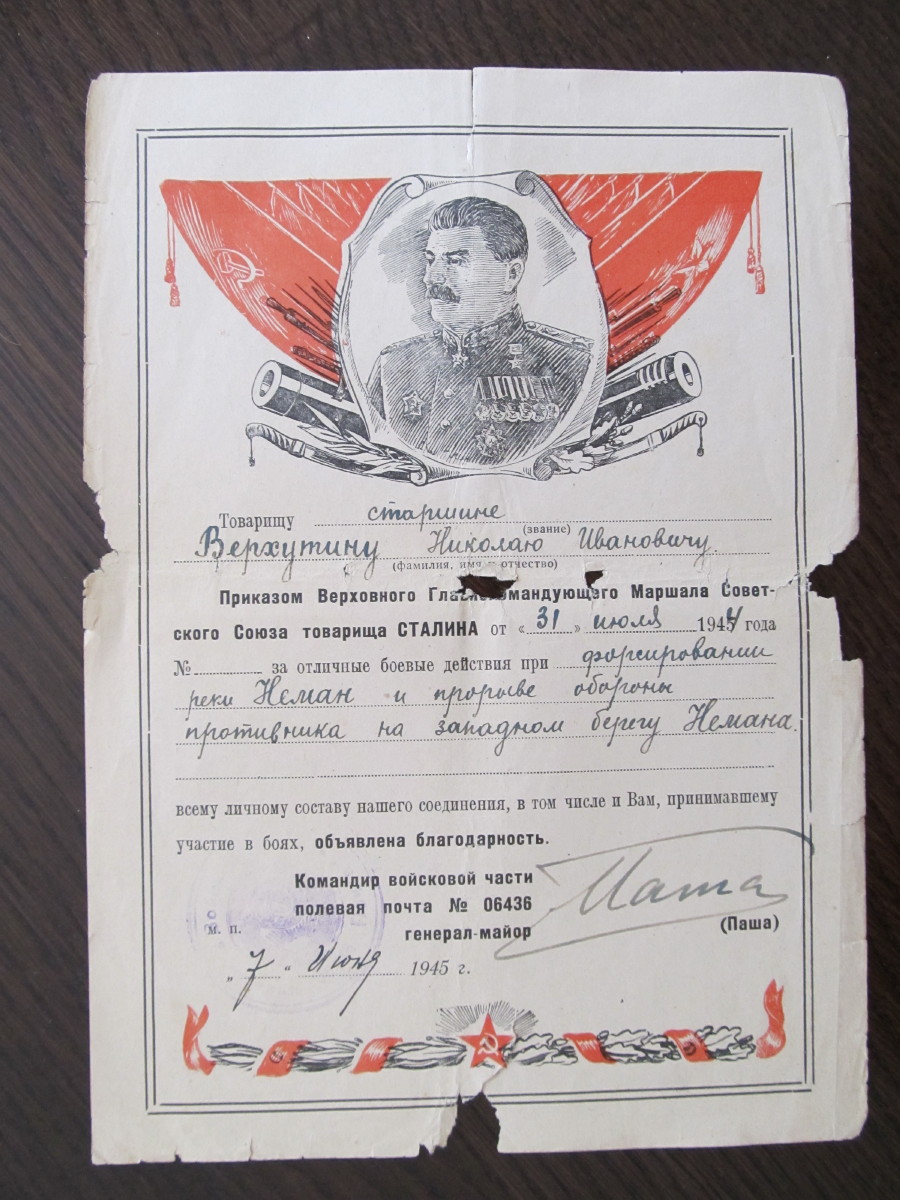 Товарищу старшине
(звание)
Верхутину Николаю Ивановичу.
(фамилия, имя и отчество)
Приказом Верховного Главнокомандующего Маршала Совет-
ского Союза товарища СТАЛИНА от «31» июля 1944 года
№ за отличные боевые действия при форсировании
реки Неман и прорыве обороны
противника на западном берегу Немана.
всему личному составу нашего соединения, в том числе и Вам, принимавшему
участие в боях, объявлена благодарность.
Командир войсковой части
полевая почта № 06436
генерал-майор Паша (Паша)
м. п.
„7“ Июня 1945 г.